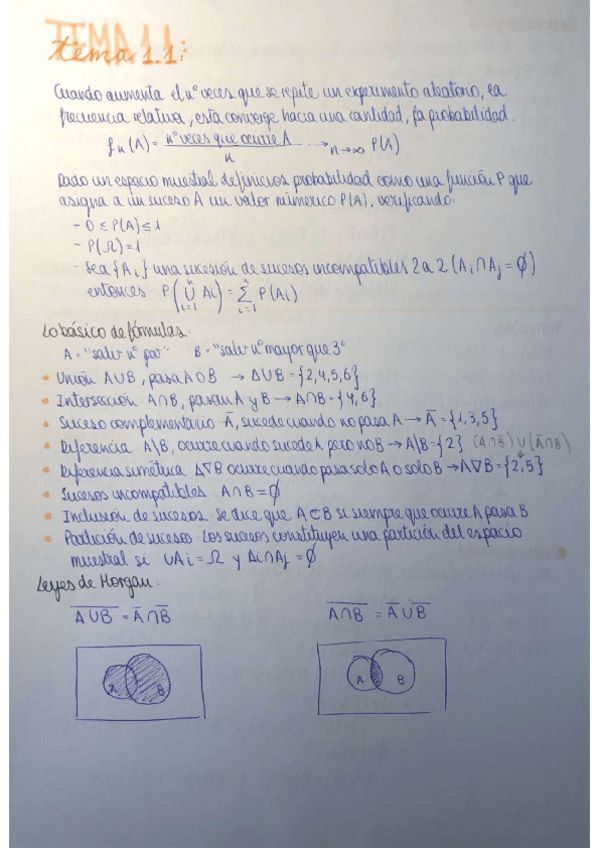 TEMA 1.1
tema 1.1:
Cuando aumenta el nº veces que se repite un experimento aleatorio, la
frecuencia relativa, esta converge hacia una cantidad, la probabilidad.
fn(A) = nº veces que ocurre A / n → n→∞ P(A)
Dado un espacio muestral definimos probabilidad como una función P que
asigna a un suceso A un valor númerico P(A), verificando:
- 0 ≤ P(A) ≤ 1
- P(Ω) = 1
- Sea {Ai} una sucesión de sucesos incompatibles 2 a 2 (Ai ∩ Aj = ∅)
entonces P(⋃ i=1 n Ai) = Σ i=1 n P(Ai)
Lo básico de fórmulas:
A = "salir nº par" B = "salir nº mayor que 3"
• Unión A∪B, pasa A O B → A∪B = {2,4,5,6}
• Intersección A∩B, pasan A y B → A∩B = {4,6}
• Suceso complementario A̅, sucede cuando no pasa A → A̅ = {1,3,5}
• Diferencia A\B, ocurre cuando sucede A pero no B → A\B = {2} (A∩B̅) ∪ (A̅∩B)
• Diferencia simétrica A∇B ocurre cuando pasa solo A o solo B → A∇B = {2,5}
• Sucesos incompatibles A∩B = ∅
• Inclusión de sucesos se dice que A⊂B si siempre que ocurre A pasa B
• Partición de sucesos Los sucesos constituyen una partición del espacio
muestral si ∪Ai = Ω y Ai∩Aj = ∅
Leyes de Morgan:
A∪B‾ = A̅∩B̅ A∩B‾ = A̅∪B̅
A B A B